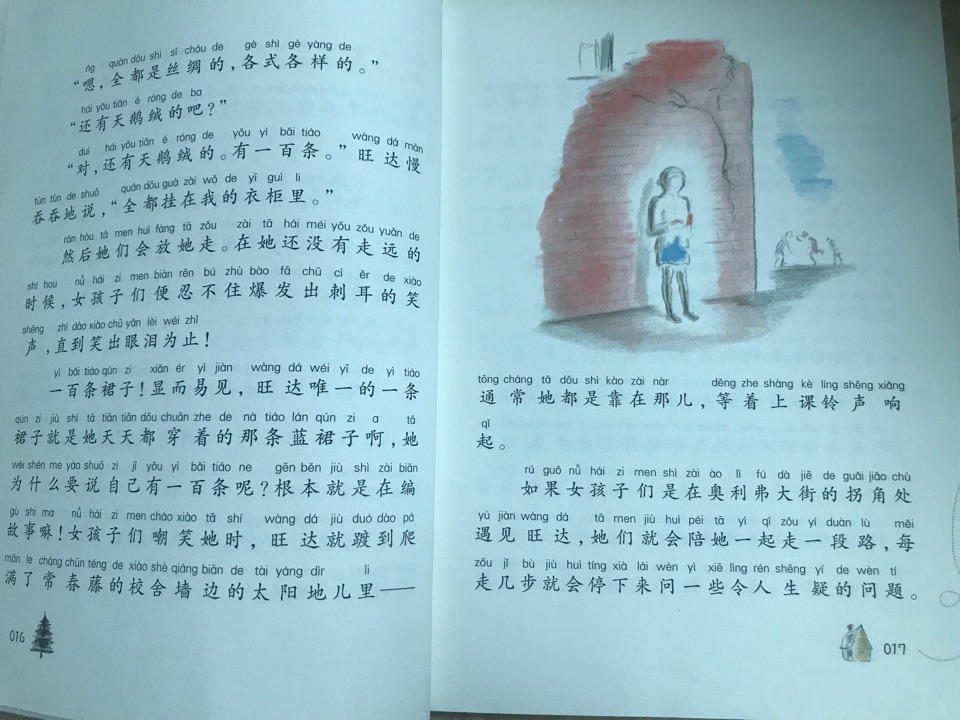 ńg quán dōu shì sī chóu de gè shì gè yàng de
“嗯，全都是丝绸的，各式各样的。”
hái yǒu tiān é róng de ba
“还有天鹅绒的吧？”
duì hái yǒu tiān é róng de yǒu yì bǎi tiáo wàng dá màn
“对，还有天鹅绒的。有一百条。”旺达慢
tūn tūn de shuō quán dōu guà zài wǒ de yī guì li
吞吞地说，“全都挂在我的衣柜里。”
rán hòu tā men huì fàng tā zǒu zài tā hái méi yǒu zǒu yuǎn de
然后她们会放她走。在她还没有走远的
shí hou nǚ hái zi men biàn rěn bú zhù bào fā chū cì ěr de xiào
时候，女孩子们便忍不住爆发出刺耳的笑
shēng zhí dào xiào chū yǎn lèi wéi zhǐ
声，直到笑出眼泪为止！
yì bǎi tiáo qún zi xiǎn ér yì jiàn wàng dá wéi yī de yì tiáo
一百条裙子！显而易见，旺达唯一的一条
qún zi jiù shì tā tiān tiān dōu chuān zhe de nà tiáo lán qún zi a tā
裙子就是她天天都穿着的那条蓝裙子啊，她
wèi shén me yào shuō zì jǐ yǒu yì bǎi tiáo ne gēn běn jiù shì zài biān
为什么要说自己有一百条呢？根本就是在编
gù shi ma nǚ hái zi men cháo xiào tā shí wàng dá jiù duó dào pá
故事嘛！女孩子们嘲笑她时，旺达就踱到爬
mǎn le cháng chūn téng de xiào shè qiáng biān de tài yáng dìr li
满了常春藤的校舍墙边的太阳地儿里——
016
tōng cháng tā dōu shì kào zài nàr děng zhe shàng kè líng shēng xiǎng
通常她都是靠在那儿，等着上课铃声响
qǐ
起。
rú guǒ nǚ hái zi men shì zài ào lì fú dà jiē de guǎi jiǎo chù
如果女孩子们是在奥利弗大街的拐角处
yù jiàn wàng dá tā men jiù huì péi tā yì qǐ zǒu yí duàn lù měi
遇见旺达，她们就会陪她一起走一段路，每
zǒu jǐ bù jiù huì tíng xià lái wèn yì xiē lìng rén shēng yí de wèn tí
走几步就会停下来问一些令人生疑的问题。
017